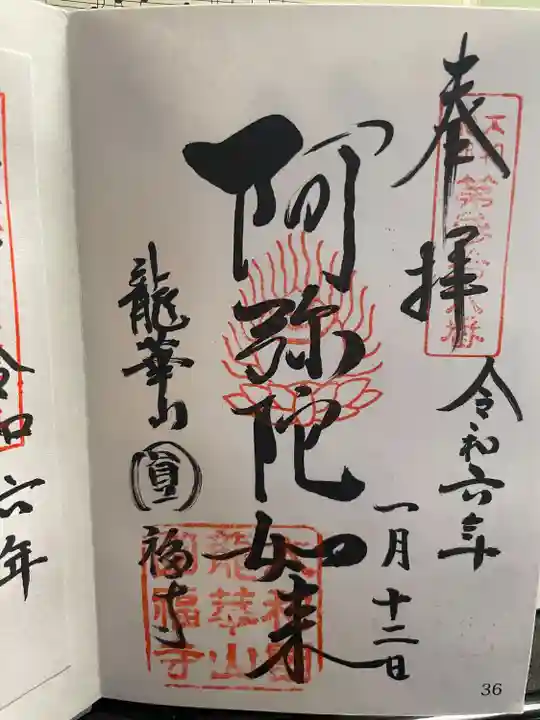 奉拝
令和六年
一月十二日
阿弥陀如来
龍華山
圓福寺
龍華山
圓福寺
令和六年
36